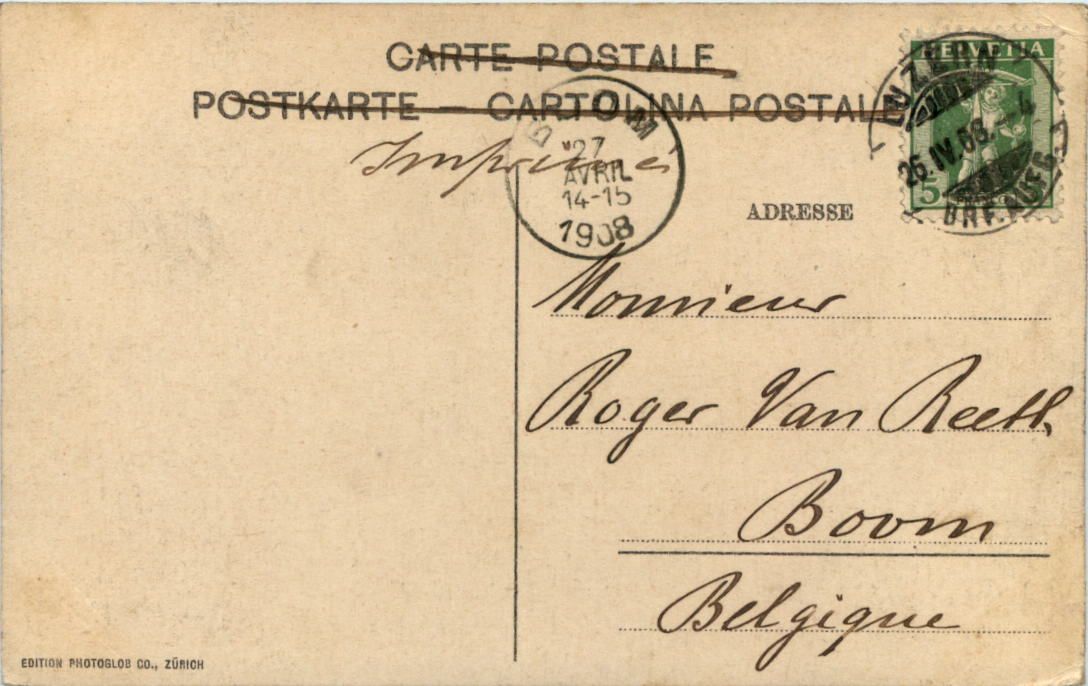 CARTE POSTALE
POSTKARTE — CARTOLINA POSTALE
Imprimés
BOOM
27
AVRIL
14-15
1908
HELVETIA
5
LUZERN
26.IV.08.–4
BRF.AUFG.
ADRESSE
Monsieur
Roger Van Reeth
Boom
Belgique
EDITION PHOTOGLOB CO., ZÜRICH